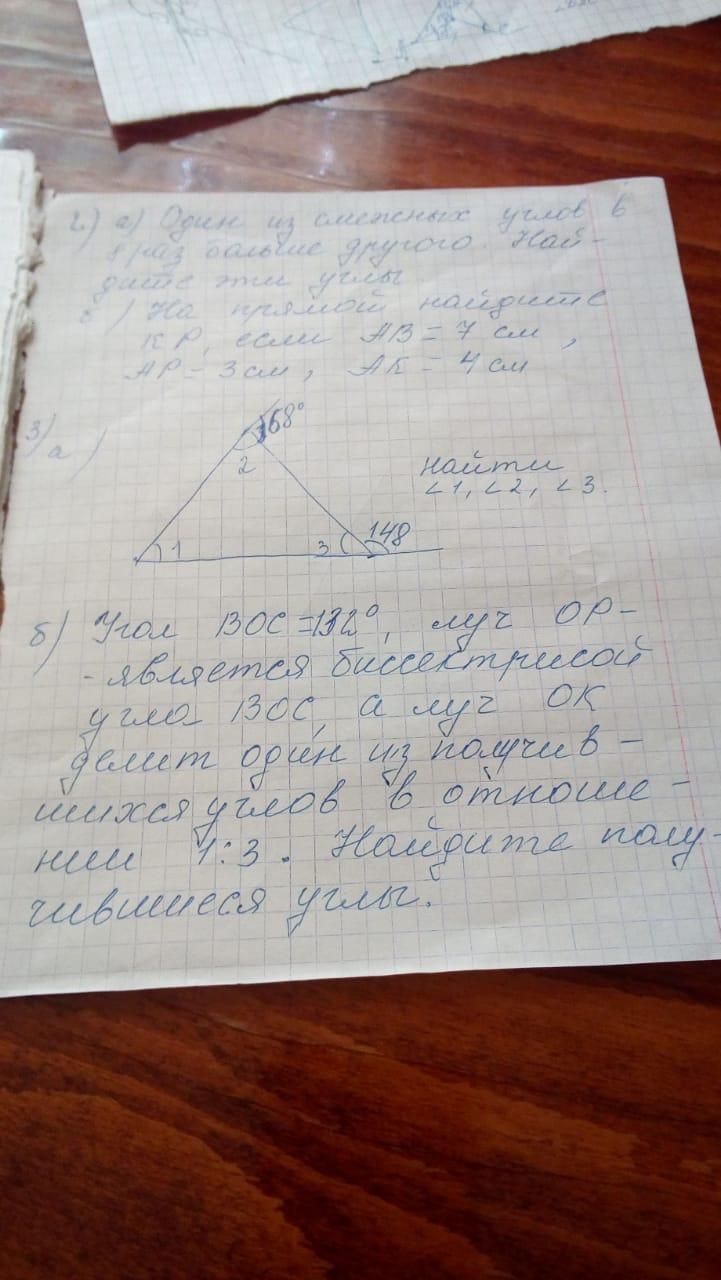 2.) а) Один из смежных углов в
8 раз больше другого. Най-
дите эти углы.
б) На прямой найдите
КР, если АВ = 7 см,
АР = 3 см, АК = 4 см
3) а)
68°
2
найти
∠1, ∠2, ∠3.
1
3
148
б) Угол ВОС = 132°, луч ОР-
- является биссектрисой
угла ВОС, а луч ОК
делит один из получив -
шихся углов в отноше -
нии 1:3. Найдите полу-
чившиеся углы.